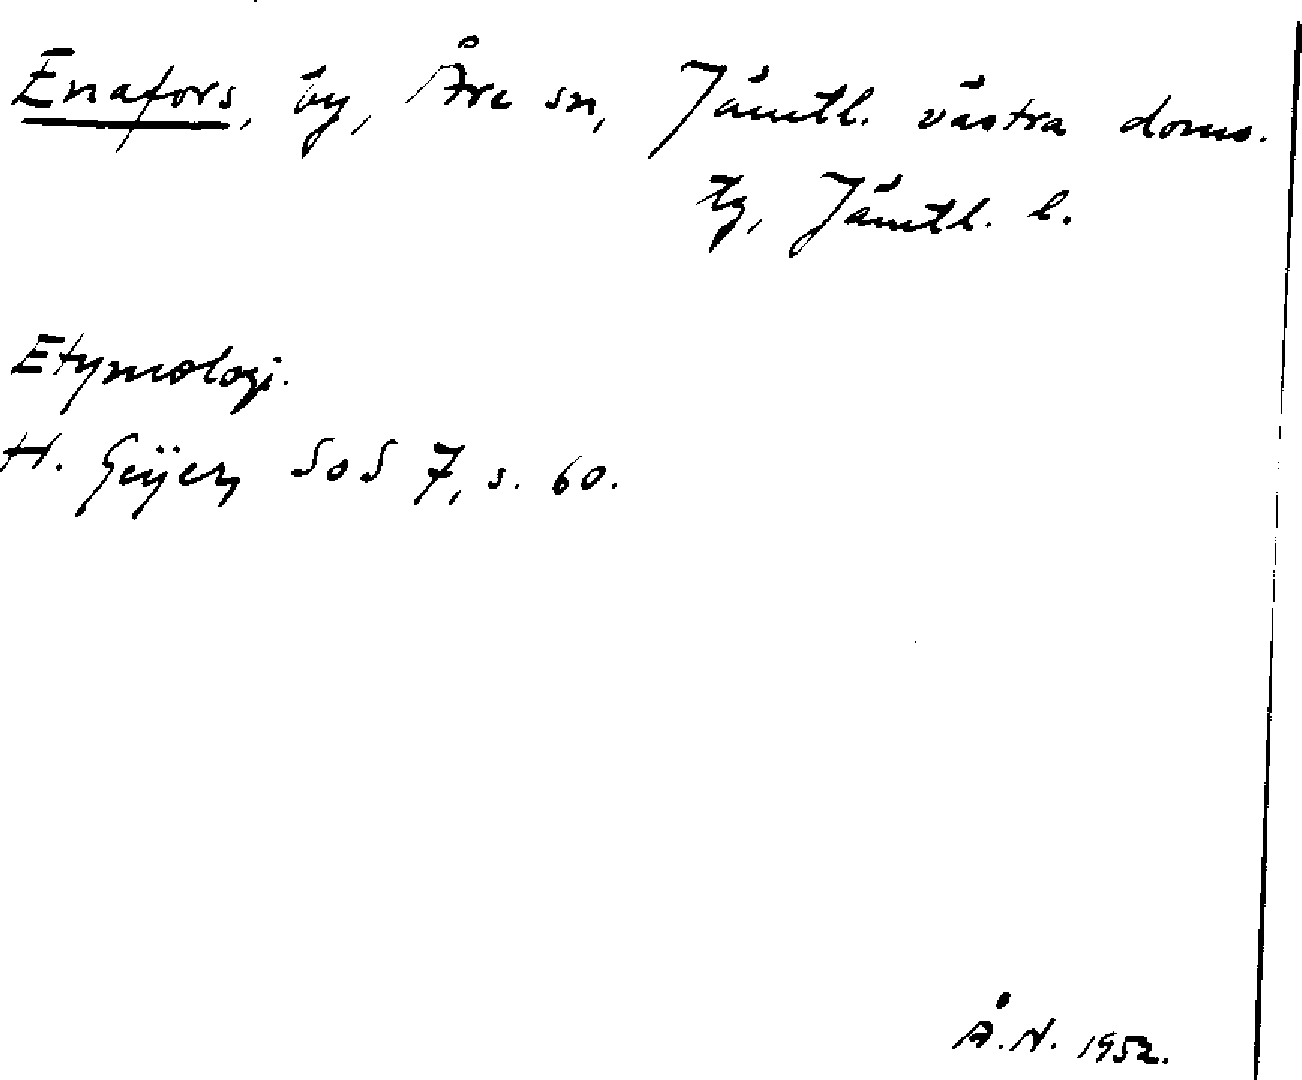 Enafors, by, Åre sn, Jämtl. västra doms.
tg, Jämtl. l.
Etymologi.
H. Geijer, SoS 7, s. 60.
Å.N. 1952.